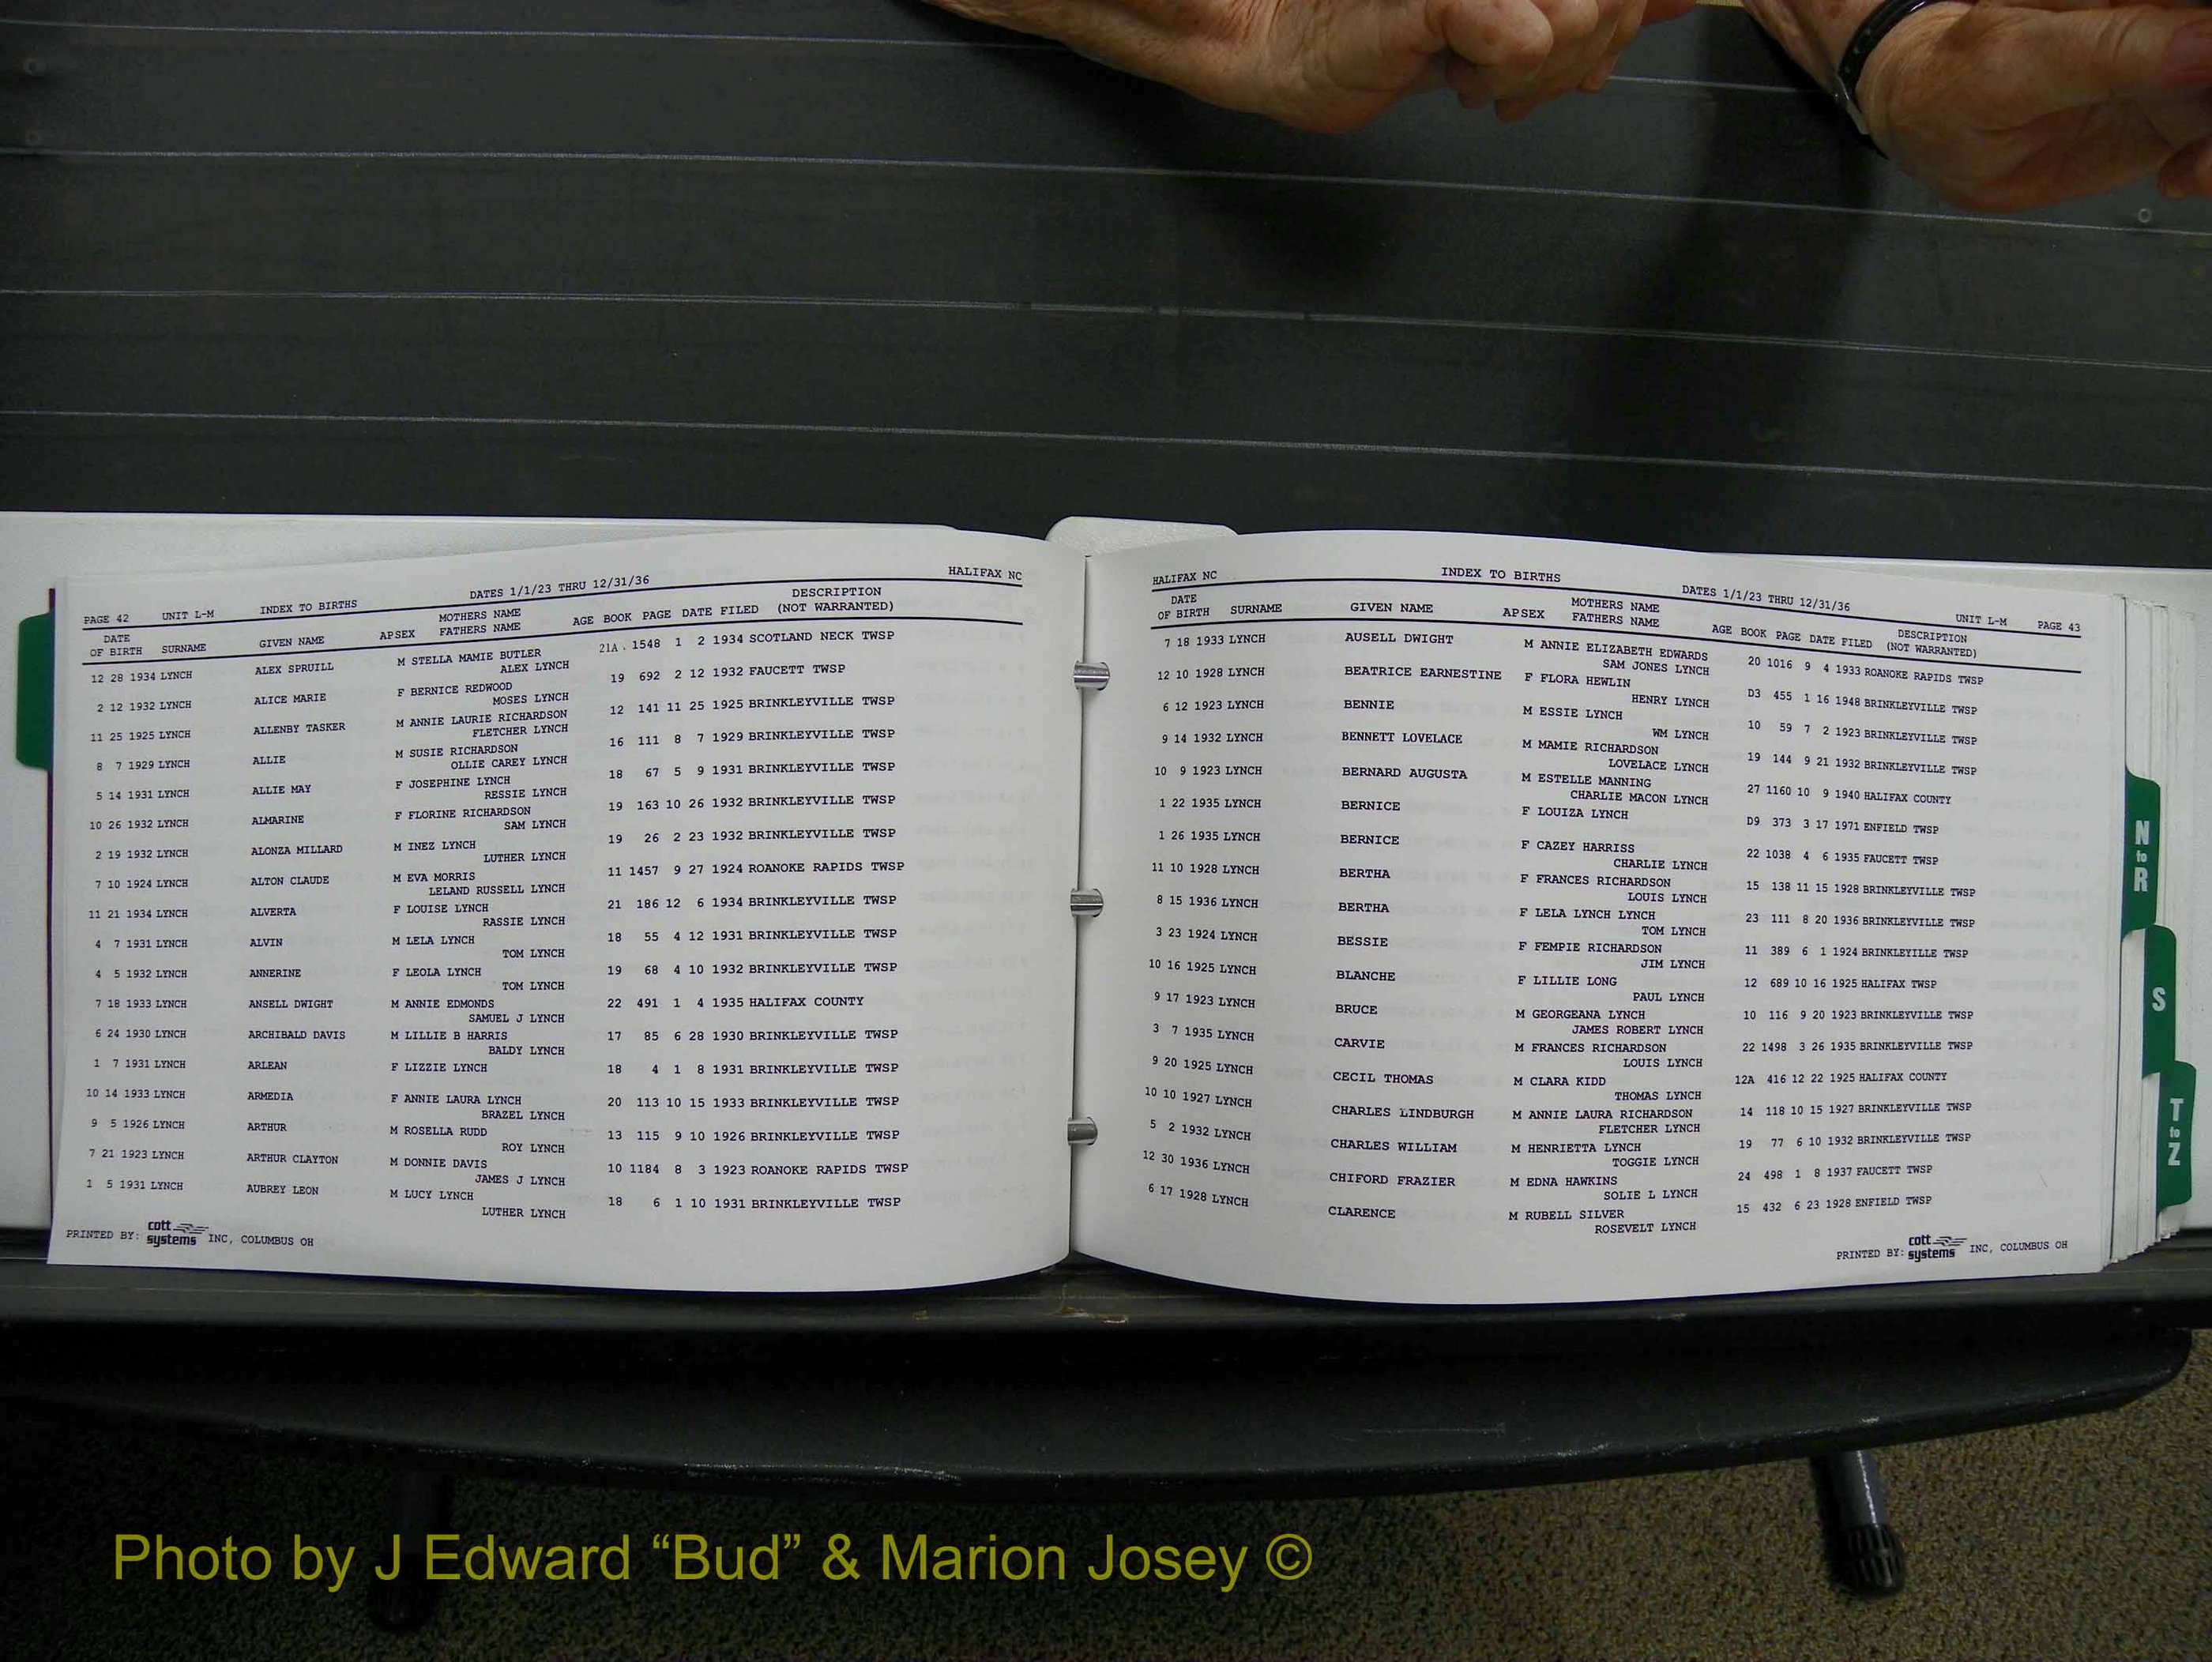 HALIFAX NC
DATES 1/1/23 THRU 12/31/36
PAGE 42 UNIT L-M INDEX TO BIRTHS
DATE OF BIRTH SURNAME GIVEN NAME AP SEX MOTHERS NAME FATHERS NAME AGE BOOK PAGE DATE FILED DESCRIPTION (NOT WARRANTED)
12 28 1934 LYNCH ALEX SPRUILL M STELLA MAMIE BUTLER 21A. 1548 1 2 1934 SCOTLAND NECK TWSP
ALEX LYNCH
2 12 1932 LYNCH ALICE MARIE F BERNICE REDWOOD 19 692 2 12 1932 FAUCETT TWSP
MOSES LYNCH
11 25 1925 LYNCH ALLENBY TASKER M ANNIE LAURIE RICHARDSON 12 141 11 25 1925 BRINKLEYVILLE TWSP
FLETCHER LYNCH
8 7 1929 LYNCH ALLIE M SUSIE RICHARDSON 16 111 8 7 1929 BRINKLEYVILLE TWSP
OLLIE CAREY LYNCH
5 14 1931 LYNCH ALLIE MAY F JOSEPHINE LYNCH 18 67 5 9 1931 BRINKLEYVILLE TWSP
RESSIE LYNCH
10 26 1932 LYNCH ALMARINE F FLORINE RICHARDSON 19 163 10 26 1932 BRINKLEYVILLE TWSP
SAM LYNCH
2 19 1932 LYNCH ALONZA MILLARD M INEZ LYNCH 19 26 2 23 1932 BRINKLEYVILLE TWSP
LUTHER LYNCH
7 10 1924 LYNCH ALTON CLAUDE M EVA MORRIS 11 1457 9 27 1924 ROANOKE RAPIDS TWSP
LELAND RUSSELL LYNCH
11 21 1934 LYNCH ALVERTA F LOUISE LYNCH 21 186 12 6 1934 BRINKLEYVILLE TWSP
RASSIE LYNCH
4 7 1931 LYNCH ALVIN M LELA LYNCH 18 55 4 12 1931 BRINKLEYVILLE TWSP
TOM LYNCH
4 5 1932 LYNCH ANNERINE F LEOLA LYNCH 19 68 4 10 1932 BRINKLEYVILLE TWSP
TOM LYNCH
7 18 1933 LYNCH ANSELL DWIGHT M ANNIE EDMONDS 22 491 1 4 1935 HALIFAX COUNTY
SAMUEL J LYNCH
6 24 1930 LYNCH ARCHIBALD DAVIS M LILLIE B HARRIS 17 85 6 28 1930 BRINKLEYVILLE TWSP
BALDY LYNCH
1 7 1931 LYNCH ARLEAN F LIZZIE LYNCH 18 4 1 8 1931 BRINKLEYVILLE TWSP
10 14 1933 LYNCH ARMEDIA F ANNIE LAURA LYNCH 20 113 10 15 1933 BRINKLEYVILLE TWSP
BRAZEL LYNCH
9 5 1926 LYNCH ARTHUR M ROSELLA RUDD 13 115 9 10 1926 BRINKLEYVILLE TWSP
ROY LYNCH
7 21 1923 LYNCH ARTHUR CLAYTON M DONNIE DAVIS 10 1184 8 3 1923 ROANOKE RAPIDS TWSP
JAMES J LYNCH
1 5 1931 LYNCH AUBREY LEON M LUCY LYNCH 18 6 1 10 1931 BRINKLEYVILLE TWSP
LUTHER LYNCH
PRINTED BY: cott systems INC, COLUMBUS OH
HALIFAX NC INDEX TO BIRTHS DATES 1/1/23 THRU 12/31/36 UNIT L-M PAGE 43
DATE OF BIRTH SURNAME GIVEN NAME AP SEX MOTHERS NAME FATHERS NAME AGE BOOK PAGE DATE FILED DESCRIPTION (NOT WARRANTED)
7 18 1933 LYNCH AUSELL DWIGHT M ANNIE ELIZABETH EDWARDS 20 1016 9 4 1933 ROANOKE RAPIDS TWSP
SAM JONES LYNCH
12 10 1928 LYNCH BEATRICE EARNESTINE F FLORA HEWLIN D3 455 1 16 1948 BRINKLEYVILLE TWSP
HENRY LYNCH
6 12 1923 LYNCH BENNIE M ESSIE LYNCH 10 59 7 2 1923 BRINKLEYVILLE TWSP
WM LYNCH
9 14 1932 LYNCH BENNETT LOVELACE M MAMIE RICHARDSON 19 144 9 21 1932 BRINKLEYVILLE TWSP
LOVELACE LYNCH
10 9 1923 LYNCH BERNARD AUGUSTA M ESTELLE MANNING 27 1160 10 9 1940 HALIFAX COUNTY
CHARLIE MACON LYNCH
1 22 1935 LYNCH BERNICE F LOUIZA LYNCH D9 373 3 17 1971 ENFIELD TWSP
1 26 1935 LYNCH BERNICE F CAZEY HARRISS 22 1038 4 6 1935 FAUCETT TWSP
CHARLIE LYNCH
11 10 1928 LYNCH BERTHA F FRANCES RICHARDSON 15 138 11 15 1928 BRINKLEYVILLE TWSP
LOUIS LYNCH
8 15 1936 LYNCH BERTHA F LELA LYNCH LYNCH 23 111 8 20 1936 BRINKLEYVILLE TWSP
TOM LYNCH
3 23 1924 LYNCH BESSIE F FEMPIE RICHARDSON 11 389 6 1 1924 BRINKLEYILLE TWSP
JIM LYNCH
10 16 1925 LYNCH BLANCHE F LILLIE LONG 12 689 10 16 1925 HALIFAX TWSP
PAUL LYNCH
9 17 1923 LYNCH BRUCE M GEORGEANA LYNCH 10 116 9 20 1923 BRINKLEYVILLE TWSP
JAMES ROBERT LYNCH
3 7 1935 LYNCH CARVIE M FRANCES RICHARDSON 22 1498 3 26 1935 BRINKLEYVILLE TWSP
LOUIS LYNCH
9 20 1925 LYNCH CECIL THOMAS M CLARA KIDD 12A 416 12 22 1925 HALIFAX COUNTY
THOMAS LYNCH
10 10 1927 LYNCH CHARLES LINDBURGH M ANNIE LAURA RICHARDSON 14 118 10 15 1927 BRINKLEYVILLE TWSP
FLETCHER LYNCH
5 2 1932 LYNCH CHARLES WILLIAM M HENRIETTA LYNCH 19 77 6 10 1932 BRINKLEYVILLE TWSP
TOGGIE LYNCH
12 30 1936 LYNCH CHIFORD FRAZIER M EDNA HAWKINS 24 498 1 8 1937 FAUCETT TWSP
SOLIE L LYNCH
6 17 1928 LYNCH CLARENCE M RUBELL SILVER 15 432 6 23 1928 ENFIELD TWSP
ROSEVELT LYNCH
PRINTED BY: cott systems INC, COLUMBUS OH
N to R
S
T to Z
Photo by J Edward “Bud” & Marion Josey ©